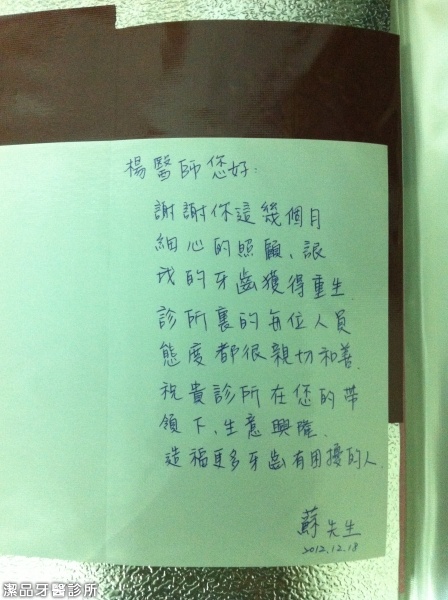 楊醫師您好:
謝謝你這幾個月
細心的照顧、讓
我的牙齒獲得重生
診所裏的每位人員
態度都很親切和善
祝貴診所在您的帶
領下、生意興隆
造福更多牙齒有困擾的人
蘇先生
2012.12.18
潔品牙醫診所